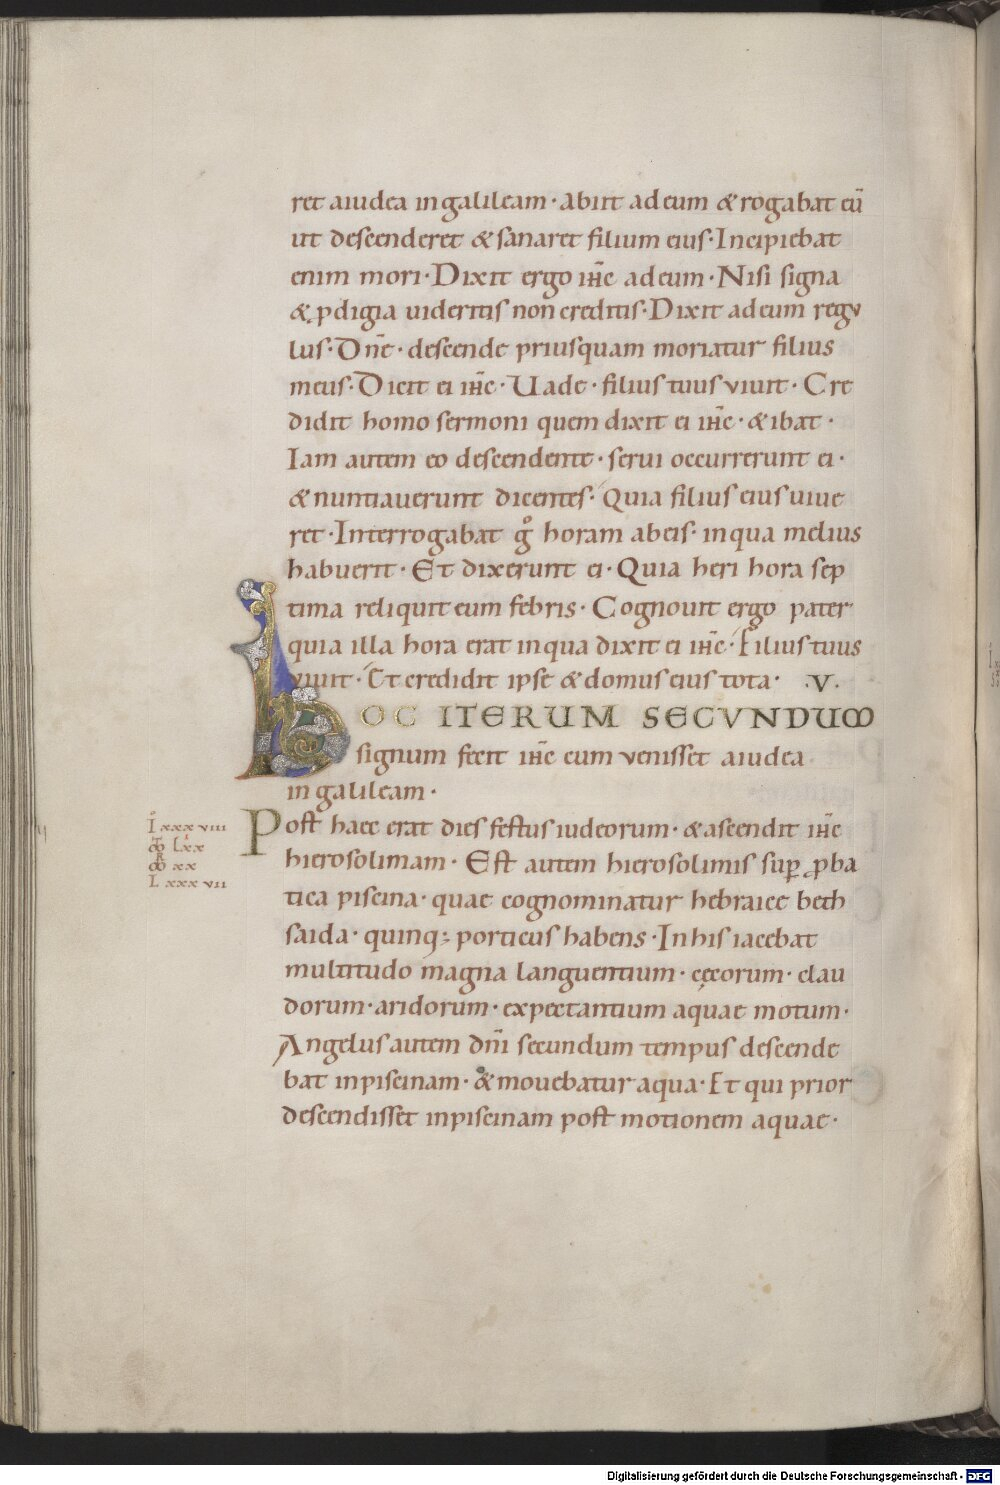 ret aiudea in galileam · abiit ad eum & rogabat eū
ut descenderet & sanaret filium eius · Incipiebat
enim mori · Dixit ergo ih̄c ad eum · Nisi signa
& ꝓdigia uideritis non creditis · Dixit ad eum regu
lus · Dn̄e · descende priusquam moriatur filius
meus · Dicit ei ih̄c · Uade · filius tuus vivit · Cre
didit homo sermoni quem dixit ei ih̄c · & ibat ·
Iam autem eo descendente · serui occurrerunt ei ·
& nuntiaverunt dicentes · Quia filius eius uiue
ret · Interrogabat gͦ horam ab eis · in qua melius
habuerit · Et dixerunt ei · Quia heri hora sep
tima reliquit eum febris · Cognouit ergo pater
quia illa hora erat in qua dixit ei ih̄c · Filius tuus
vivit · Et credidit ipse & domus eius tota · .V.
hOC ITERUM SECVNDUM
signum fecit ih̄c cum venisset aiudea
in galileam ·
Post haec erat dies festus iudeorum · & ascendit ih̄c
hierosolimam · Est autem hierosolimis suꝑ ꝓba
tica piscina · quae cognominatur hebraice beth
saida · quinq; porticus habens · In his iacebat
multitudo magna languentium · cęcorum · clau
dorum · aridorum · expectantium aquae motum ·
Angelus autem dn̄i secundum tempus descende
bat in piscinam · & movebatur aqua · Et qui prior
descendisset in piscinam post motionem aquae ·
I xxxviii
Lxx
xx
Lxxxvii
Digitalisierung gefördert durch die Deutsche Forschungsgemeinschaft - DFG